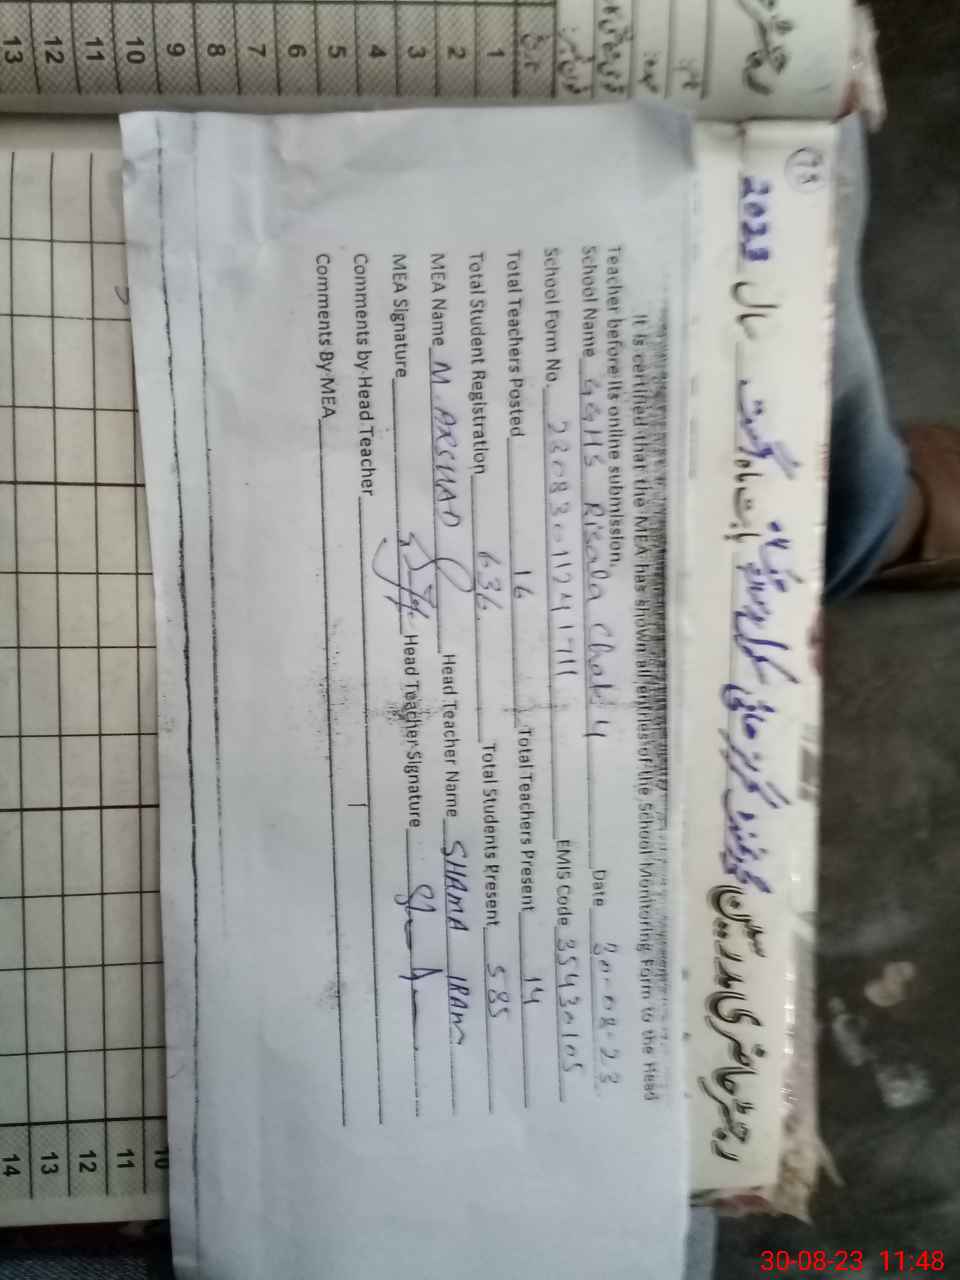 13 12 11 10 9 8 7 6 5 4 3 2 1
73
رجسٹر حاضری مدرسین گورنمنٹ گرلز ہائی سکول بابت ماہ اگست سال 2023
It is certified that the MEA has shown all entries of the School Monitoring Form to the Head
Teacher before its online submission.
School Name GGHS Risala Chak 4 Date 30-08-23
School Form No. 23083011241711 EMIS Code 35430105
Total Teachers Posted 16 Total Teachers Present 14
Total Student Registration 636 Total Students Present 585
MEA Name M. ARSHAD Head Teacher Name SHAMA IRAM
MEA Signature Head Teacher Signature
Comments by Head Teacher
Comments By MEA
10
11
12
13
14
30-08-23 11:48